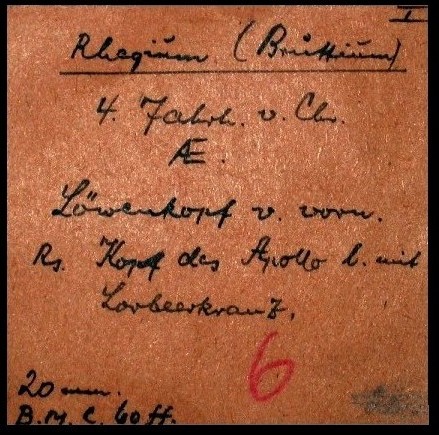 I
Rhegium. (Bruttium)
4. Jahrh. v. Chr.
Æ.
Löwenkopf v. vorn.
Rs. Kopf des Apollo l. mit
Lorbeerkranz.
6
20 mm.
B.M.C. 60 ff.